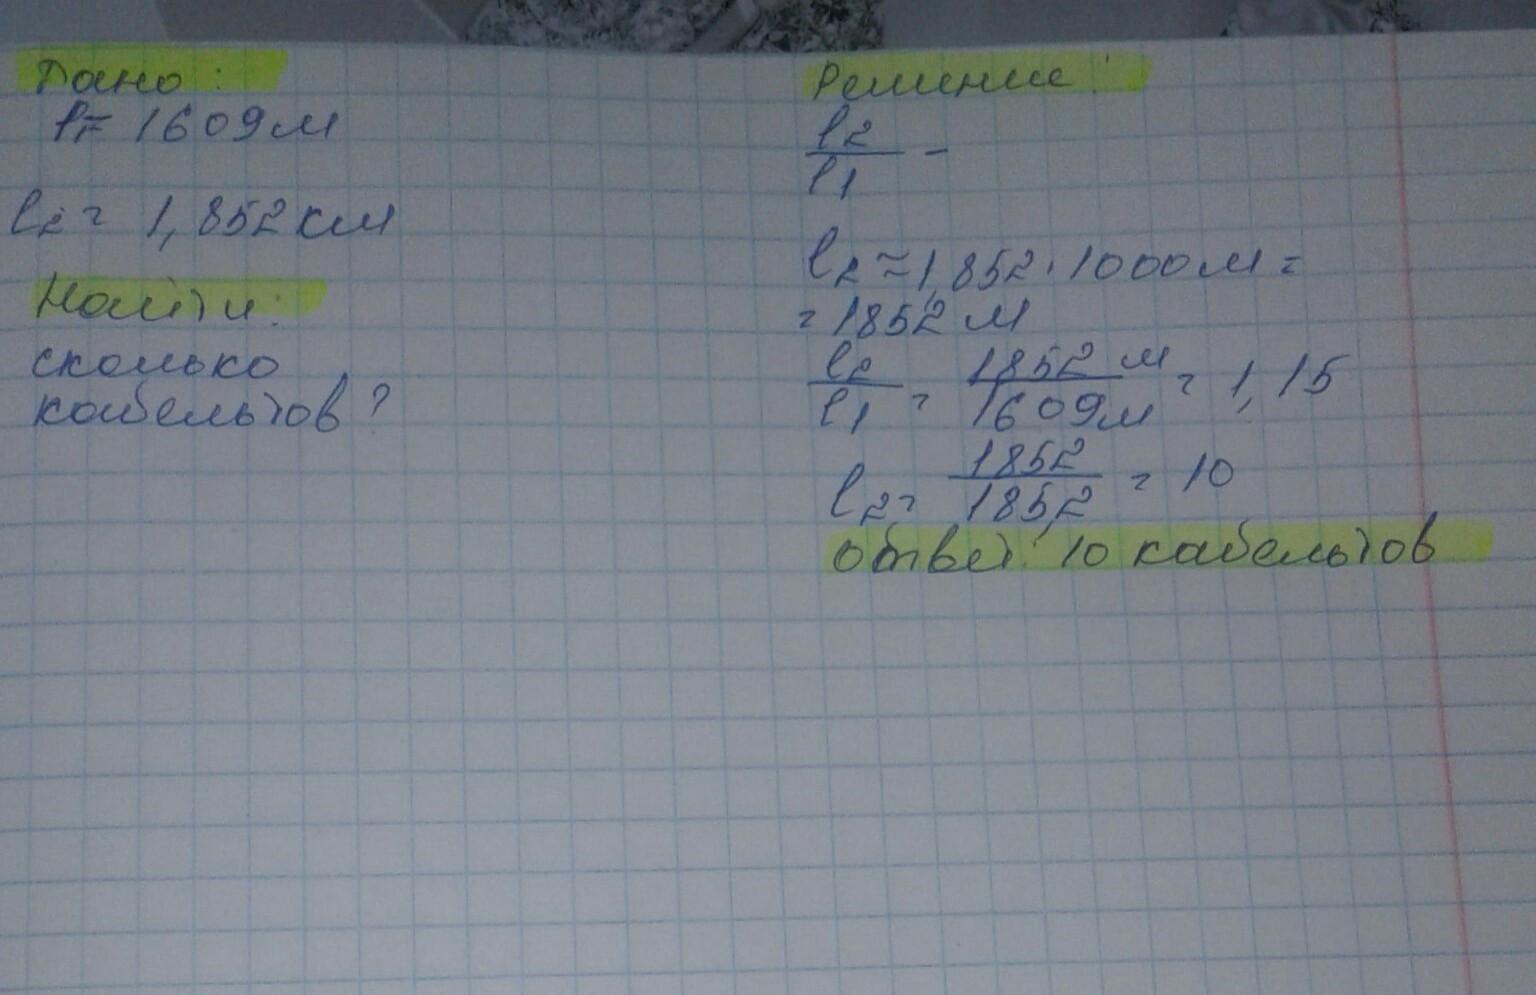 Дано:
l₁= 1609м
l₂= 1,852км
Найти:
сколько
кабельтов?
Решение:
l₂/l₁ -
l₂≈1,852·1000м=
=1852м
l₂/l₁ = 1852м/1609м = 1,15
l₂= 1852/185,2 = 10
ответ: 10 кабельтов